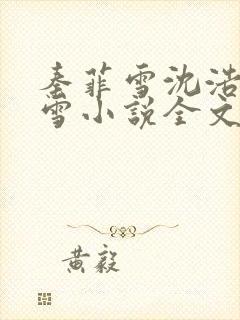 秦菲雪沈浩
雪小说全文
黄毅